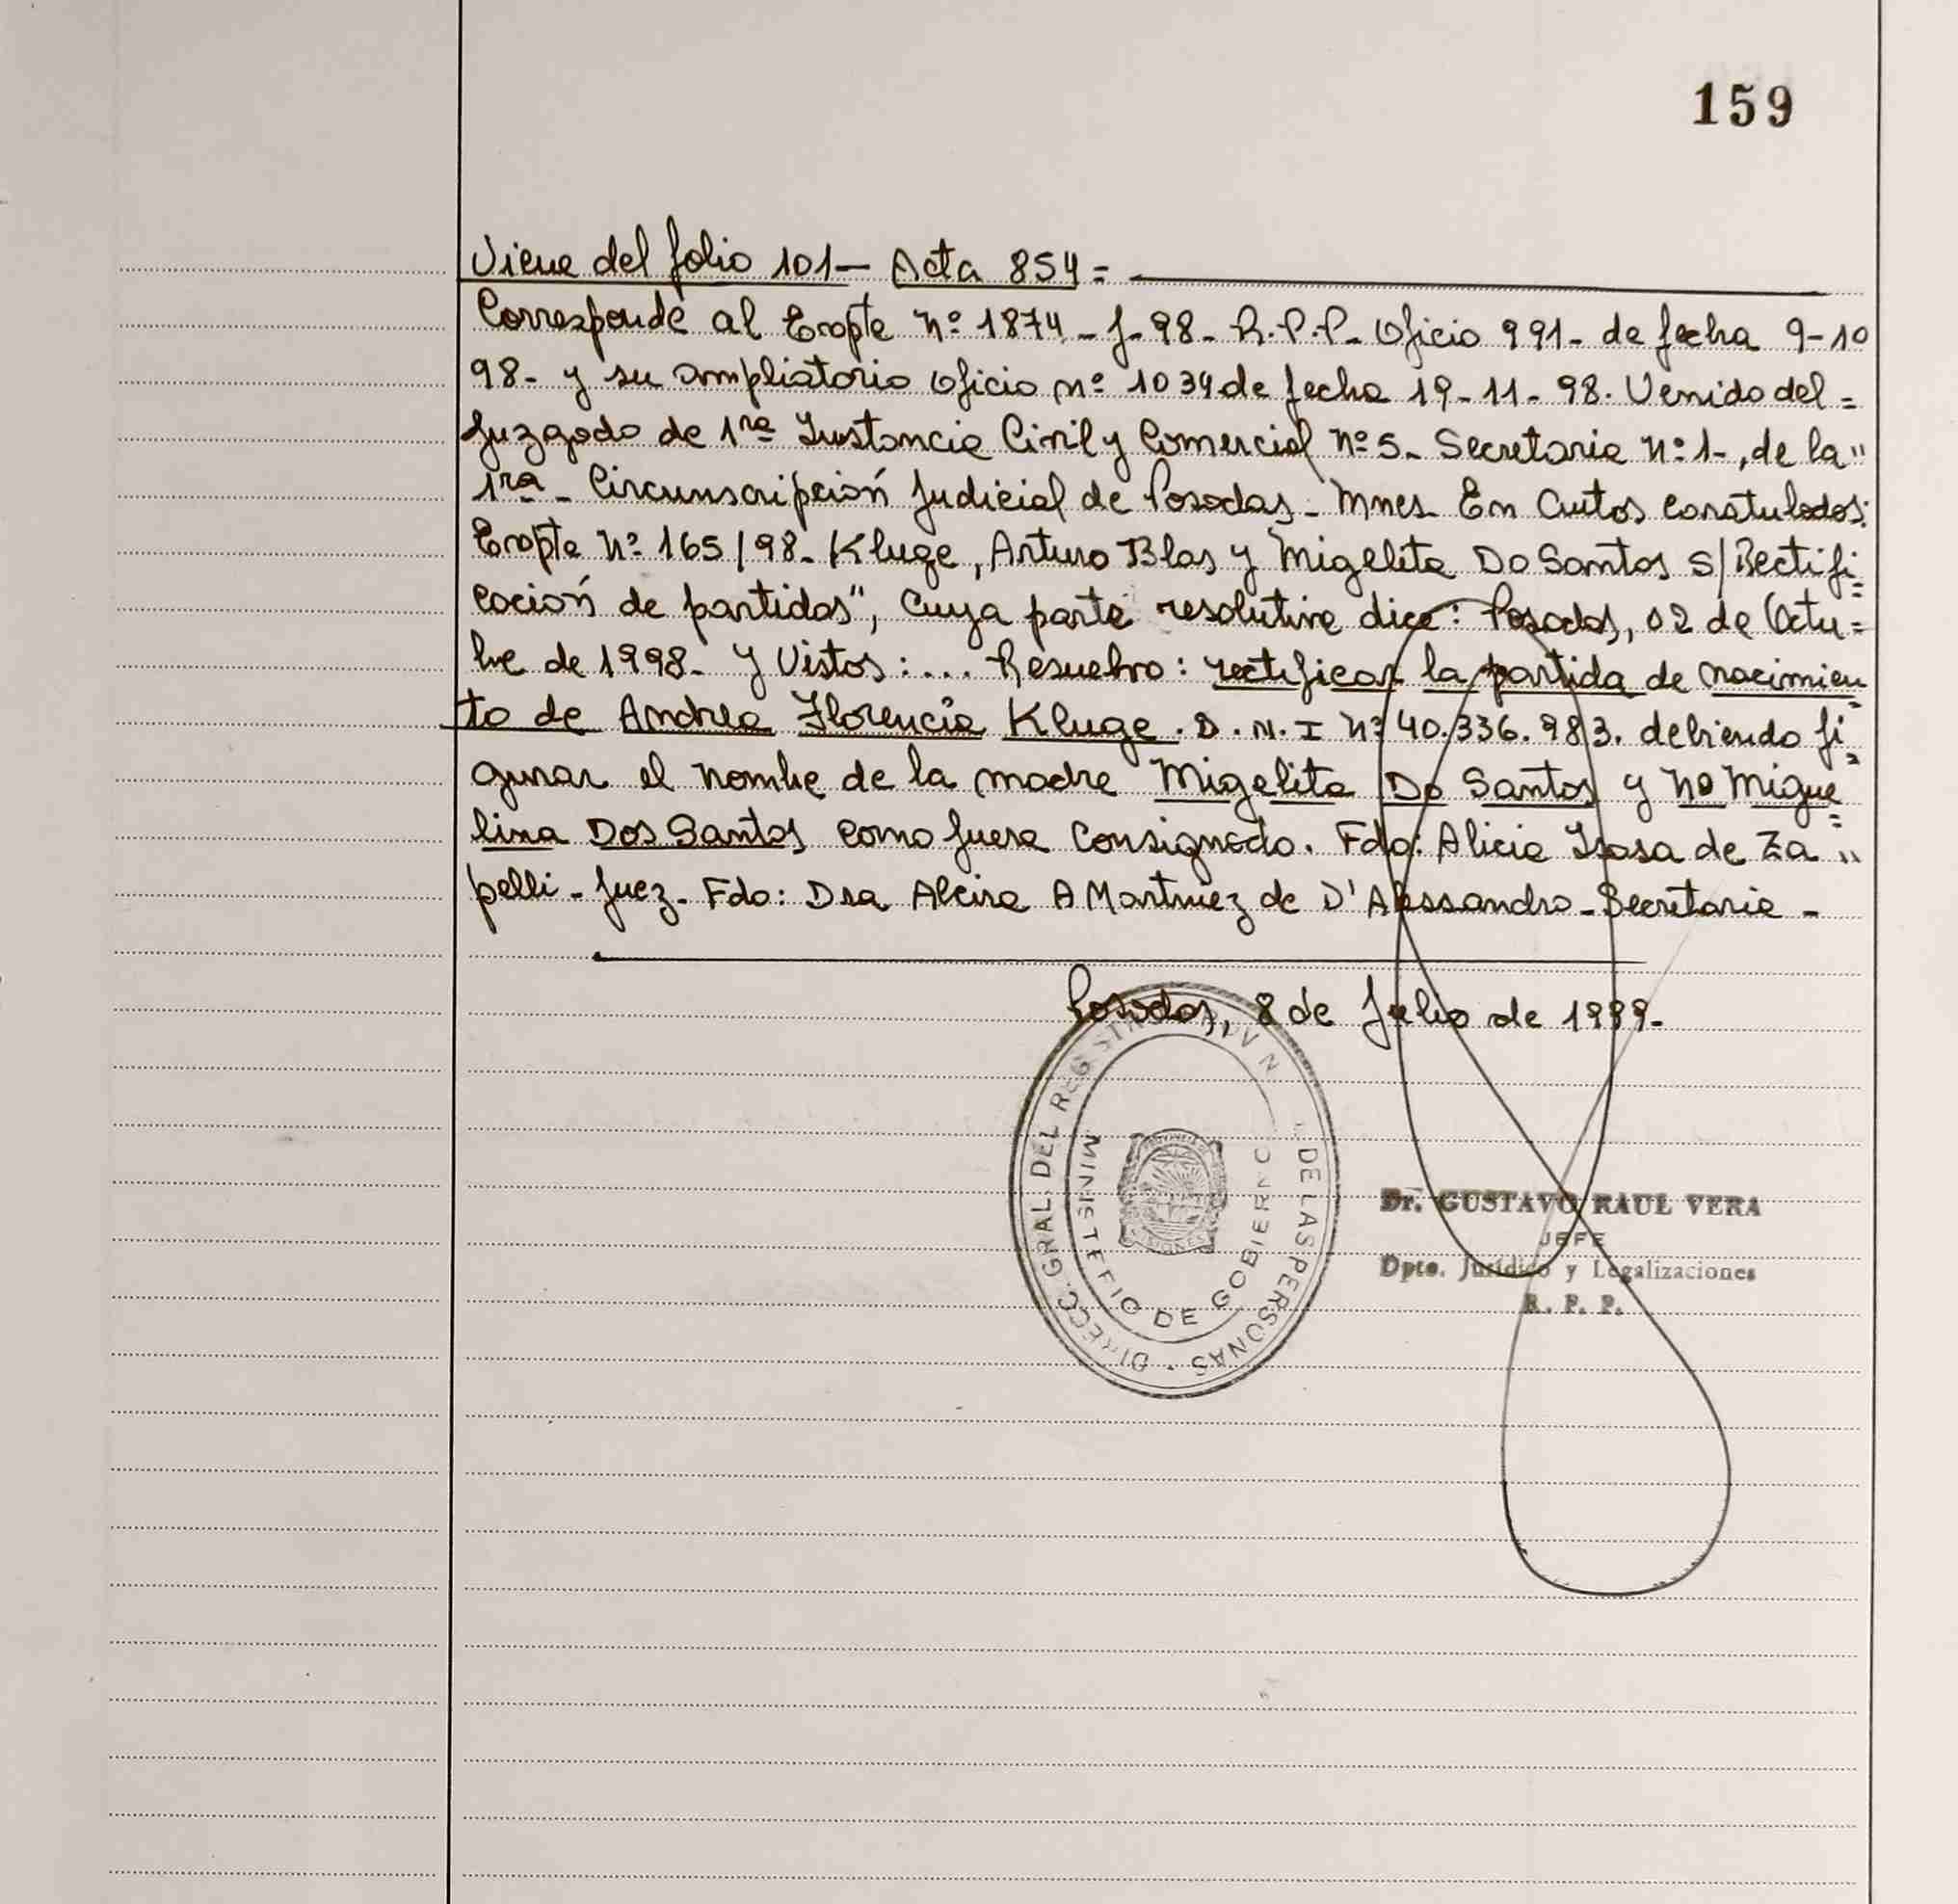 159
Viene del folio 101- Acta 854=
Corresponde al Expte Nº 1874-J-98- R.P.P- Oficio 991- de fecha 9-10
98- y su ampliatorio Oficio nº 1034 de fecha 19-11-98. Venido del =
Juzgado de 1ra Instancia Civil y Comercial Nº 5- Secretaria Nº 1-, de la"
1ra- Circunscripción Judicial de Posadas- Mnes- En Autos caratulados:
Expte Nº 165/98- Kluge, Arturo Blas y Migelita Do Santos S/Rectifi=
cación de partidas", Cuya parte resolutiva dice: Posadas, 02 de Octu=
bre de 1998- y Vistos:... Resuelvo: rectificar la partida de nacimien
to de Andrea Florencia Kluge. D.N.I Nº 40.336.983. debiendo fi=
gurar el nombre de la madre Migelita Do Santos y no Migue=
lina Dos Santos como fuera consignado. Fdo: Alicia Isasa de Za "
pelli- Juez- Fdo: Dra Alcira A Martinez de D'Alessandro- Secretaria-
Posadas, 8 de Julio de 1999-
DIRECC. GRAL DEL REG DE LAS PERSONAS
MINISTERIO DE GOBIERNO
MISIONES
Dr. GUSTAVO RAUL VERA
JEFE
Dpto. Jurídico y Legalizaciones
R. P. P.